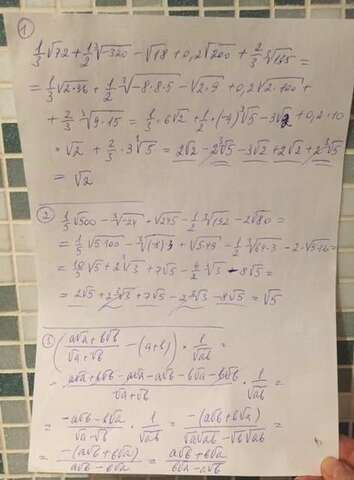 ①
1/3 √72 + 1/2 ∛-320 - √18 + 0,2√200 + 2/3 ∛135 =
= 1/3 √2·36 + 1/2 ∛-8·8·5 - √2·9 + 0,2√2·100 +
+ 2/3 ∛9·15 = 1/3 · 6√2 + 1/2 · (-4) ∛5 - 3√2 + 0,2·10
· √2 + 2/3 · 3∛5 = 2√2 - 2∛5 - 3√2 + 2√2 + 2∛5
= √2
②
1/5 √500 - ∛-24 + √245 - 1/2 ∛192 - 2√80 =
= 1/5 √5·100 - ∛(-8)·3 + √5·49 - 1/2 ∛64·3 - 2·√5·16 =
= 10/5 √5 + 2∛3 + 7√5 - 4/2 ∛3 - 8√5 =
= 2√5 + 2∛3 + 7√5 - 2∛3 - 8√5 = √5
③ ((a√a + b√b)/(√a + √b) - (a+b)) · 1/√ab =
= (a√a + b√b - a√a - a√b - b√a - b√b)/(√a + √b) · 1/√ab =
= (-a√b - b√a)/(√a - √b) · 1/√ab = -(a√b + b√a)/(√a√ab - √b√ab) =
= -(a√b + b√a)/(a√b - b√a) = (a√b + b√a)/(b√a - a√b)